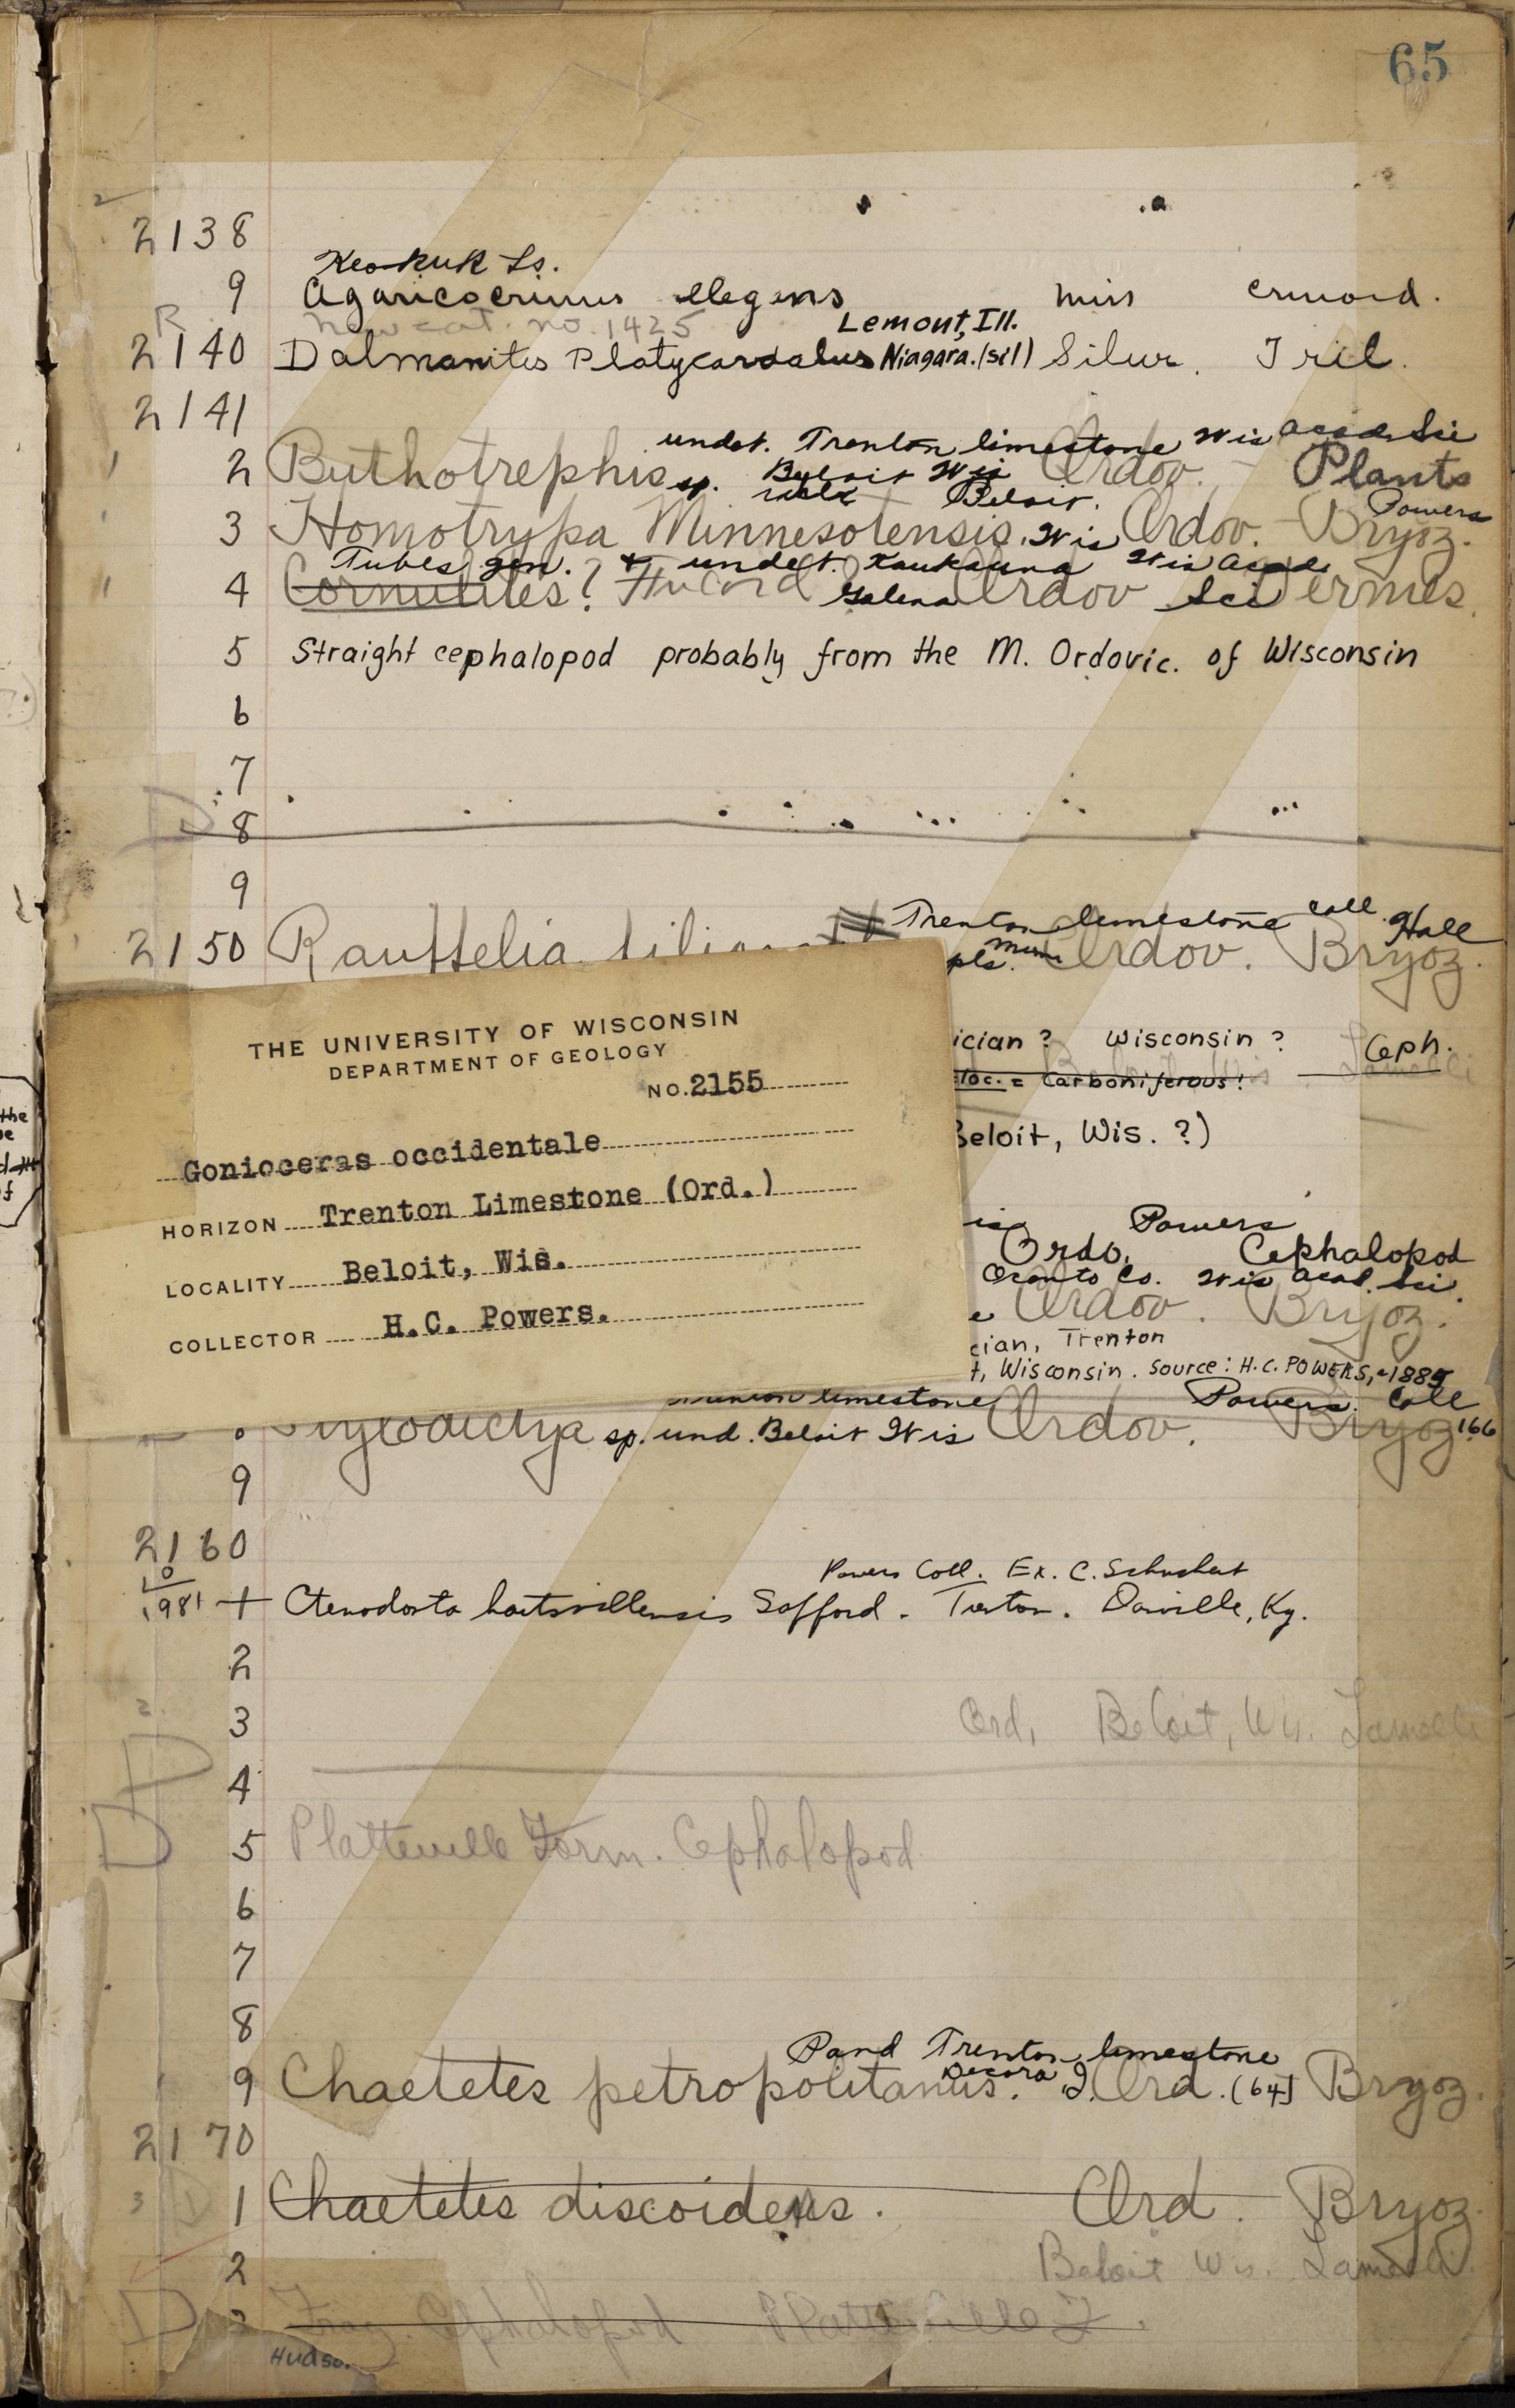 65
2138
Keokuk Ls.
9 Agaricocrinus elegans miss crinoid.
R new cat. no. 1425 Lemont, Ill.
2140 Dalmanites Platycardalus Niagara. (sil) Silur. Tril.
2141
undet. Trenton limestone Wis Acad. Sci
2 Buthotrephis sp. Beloit Wis Ordov. Plants
Beloit. Powers
3 Homotrypa Minnesotensis. Wis Ordov. Bryoz.
Tubes gen. & undet. Kaukauna Wis Acad
4 Cornulites? Fucoid Galena Ordov Sci Vermes.
5 Straight cephalopod probably from the M. Ordovic. of Wisconsin
6
7
D 8
9
Trenton limestone coll. Hall
2150 Rauffelia pls. Minn Ordov. Bryoz.
THE UNIVERSITY OF WISCONSIN
DEPARTMENT OF GEOLOGY
NO. 2155
Gonioceras occidentale
HORIZON Trenton Limestone (Ord.)
LOCALITY Beloit, Wis.
COLLECTOR H.C. Powers.
ician ? Wisconsin ? Ceph.
loc. = Carboniferous!
Beloit, Wis. ?)
is Powers
Ordo. Cephalopod
Oconto Co. Wis Acad. Sci.
Ordov. Bryoz.
cian, Trenton
t, Wisconsin. Source: H.C. POWERS, ~1885
limestone Powers. Coll
sp. und. Beloit Wis Ordov. Bryoz 166
9
2160
1981 + Ctenodonta hartsvillensis Safford. Trenton. Danville, Ky.
Powers Coll. Ex. C. Schuchert
2
3 Ord, Beloit, Wis. Lamelli
4
D 5 Platteville Form. Cephalopod
6
7
8
Pand Trenton limestone
9 Chaetetes petropolitanus. Decora I. Ord. (64) Bryoz.
2170
3 D 1 Chaetetes discoideus. Ord. Bryoz.
2 Beloit Wis. Lamelli.
D 3 Frag. Cephalopod Platteville F.
Hudso.